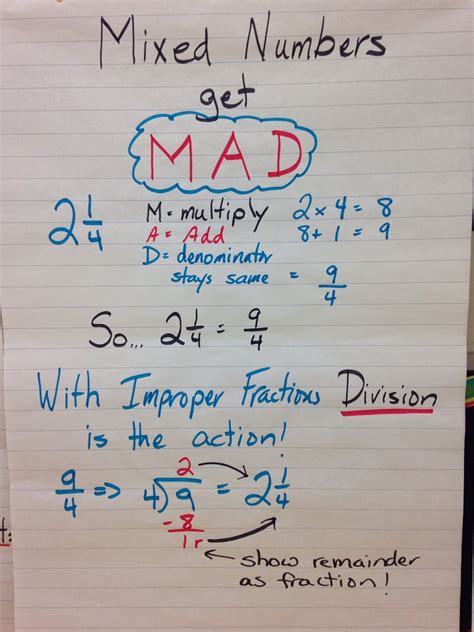 Mixed Numbers
get
MAD
2 1/4 M = multiply 2 x 4 = 8
A = Add 8 + 1 = 9
D = denominator
stays same = 9/4
So... 2 1/4 = 9/4
With Improper Fractions Division
is the action!
2
9/4 => 4)9 = 2 1/4
-8
1r
← show remainder
as fraction!